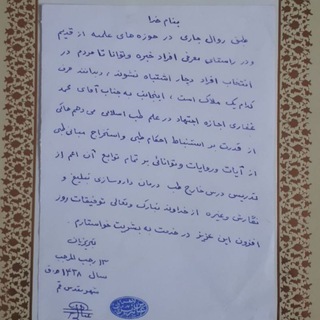 بنام خدا
طبق روال جاری در حوزه های علمیه از قدیم
ودر راستای معرفی افراد خبره وتوانا تا مردم در
انتخاب افراد دچار اشتباه نشوند، و بدانند حرف
کدام یک ملاک است، اینجانب به جناب آقای محمد
غفاری اجازه اجتهاد در علم طب اسلامی می دهم حاکی
از قدرت بر استنباط احکام طبی واستخراج مبانی طبی
از آیات وروایات وتوانائی بر تمام توابع آن اعم از
تدریس درس خارج طب درمان داروسازی تبلیغ و
نگارش وغیره از خداوند تبارک وتعالی توفیقات روز
افزون این عزیز در خدمت به بشریت خواستارم
تبریزیان
۱۳ رجب المرجب
سال ۱۴۳۸ ه.ق
شهر مقدس قم